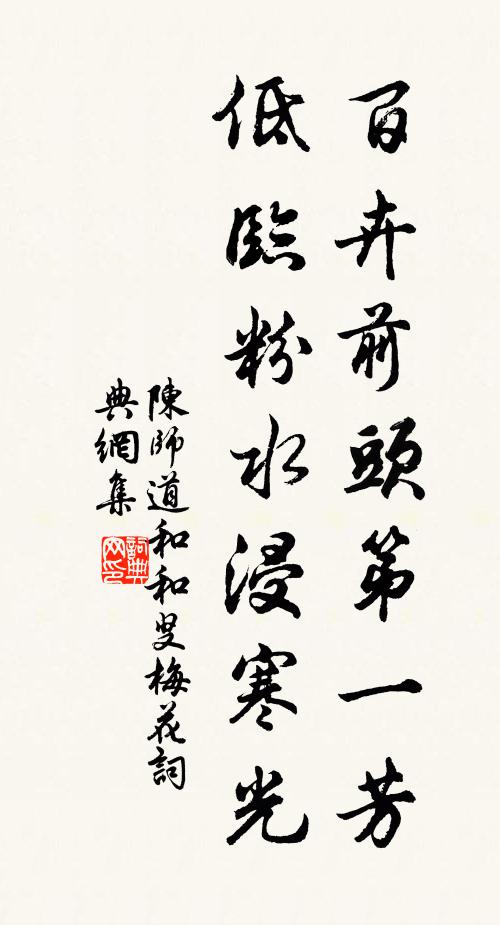 百卉前頭第一芳
低臨粉水浸寒光
陳師道和和叟梅花詞
典網集
詞典
网印